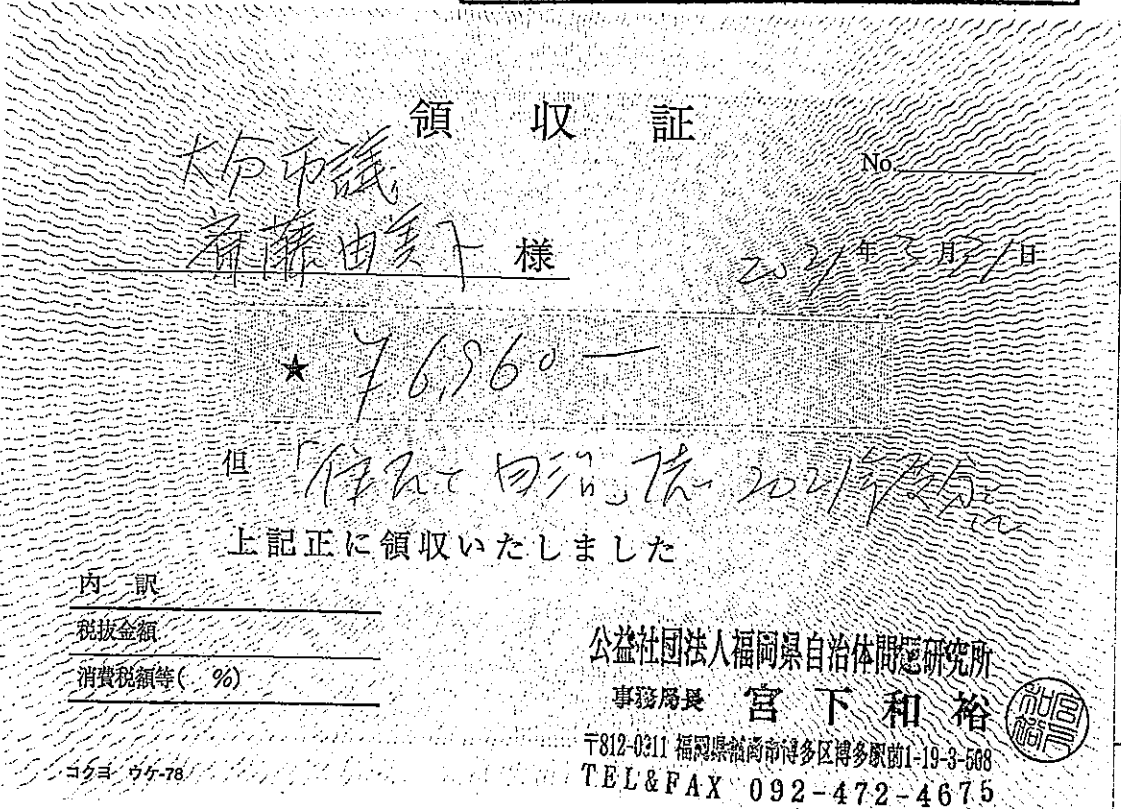 領収証
No.
大分市議
斉藤由美子 様
2021年3月31日
★ ¥6,960—
但 「住民と自治」誌 2021年度分
上記正に領収いたしました
内訳
税抜金額
消費税額等( %)
公益社団法人福岡県自治体問題研究所
事務局長 宮下和裕
〒812-0011 福岡県福岡市博多区博多駅前1-19-3-508
TEL&FAX 092-472-4675
コクヨ ウケ-78